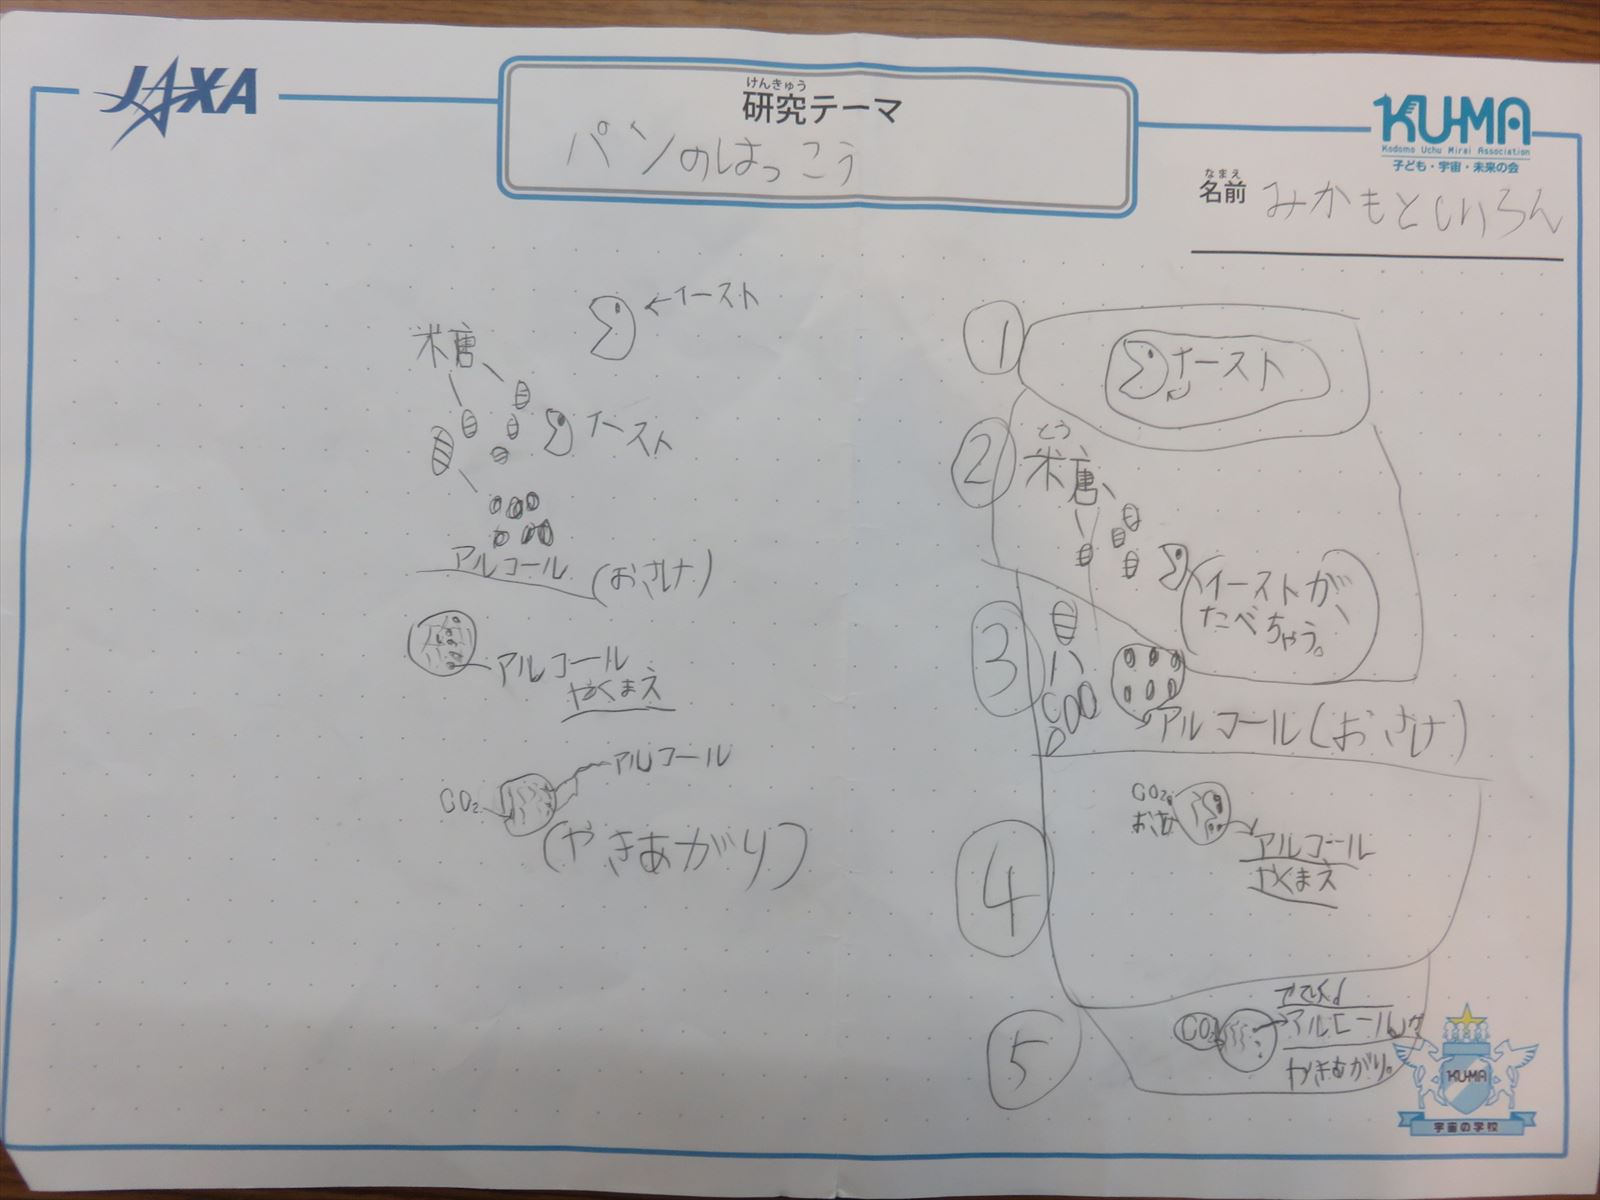 JAXA
けんきゅう
研究テーマ
パンのはっこう
KU-MA
Kodomo Uchu Mirai Association
子ども・宇宙・未来の会
なまえ
名前
←イースト
米唐
イースト
アルコール (おさけ)
アルコール
やくまえ
アルコール
CO₂
(やきあがり)
①
イースト
②
とう
米唐
イーストが
たべちゃう。
③
アルコール(おさけ)
④
CO₂
アルコール
やくまえ
⑤
CO₂
アルコールが
やきあがり。
KU-MA
宇宙の学校